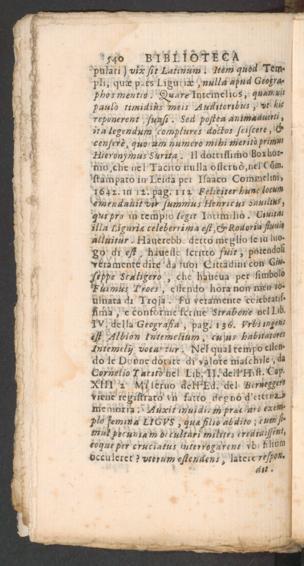 540 BIBLIOTECA
pulati) vix sit Latinum. Item quod Tem-
pli, quæ pars Liguriæ, nulla apud Geogra-
phos mentio. Quare Intemelios, quamvis
paulo timidius meis Auditoribus, ut hic
reponerent, suasi. Sed postea animadverti,
ita legendum complures doctos sciscere, &
censere, quorum numero mihi merito primus
Hieronymus Surita. Il dottissimo Boxhor-
nio, che nel Tacito nulla osservò, nel Com.
stampato in Leida per Isaaco Commelini,
1642. in 12. pag. 112 Feliciter hunc locum
emendavit vir summus Henricus Savilius,
qui pro in templo legit Intimilio. Civitas
illa Liguriæ celeberrima est, & Rodoria fluvio
alluitur. Haverebb. detto meglio se in luo-
go di est, havesse scritto fuit, potendosi
veramente dire da suoi Cittadini con Giu-
seppe Scaligero, che haveva per simbolo
Fuimus Troes, essendo hora non meno ro-
vinata di Troja. Fù veramente celebratis-
sima, e conforme scrisse Strabone nel Lib.
IV. della Geografia, pag. 196. Urbs ingens
est Albion Intemelium, cujus habitatores
Intemelij vocantur. Nel qual tempo essen-
do le Donne dotate di valore maschile, da
Cornelio Tacito nel Lib. II. dell'Hist. Cap.
XIII 2
viene registrato un fatto degno d'eterna
memoria. Auxit invidiam præclaro exem-
plo femina LIGVS, quæ filio abdito; cum si-
mul pecuniam occultari milites credidissent,
eoque per cruciatus interrogarent ubi filium
occuleret? uterum ostendens, latere respon-
dit.